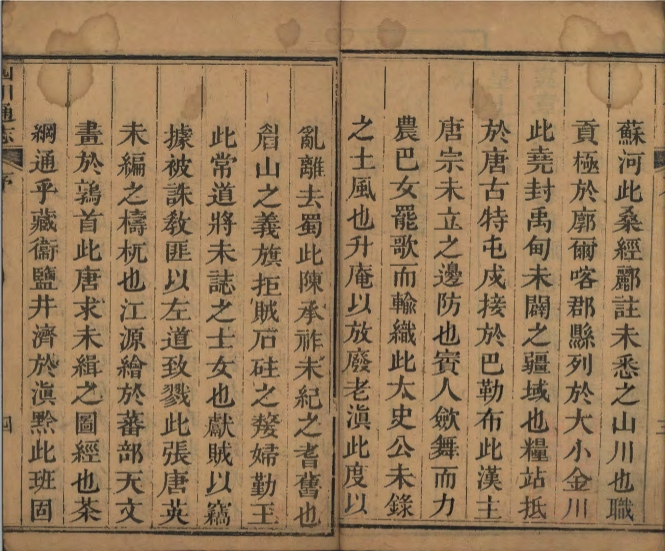 蘇河此桑經酈註未悉之山川也職
貢極於廓爾喀郡縣列於大小金川
此堯封禹甸未闢之疆域也糧站抵
於唐古特屯戍接於巴勒布此漢主
唐宗未立之邊防也賨人斂舞而力
農巴女罷歌而輸織此太史公未錄
之土風也升庵以放廢老滇此度以
亂離去蜀此陳承祚未紀之耆舊也
眉山之義旗拒賊石砫之嫠婦勤王
此常道將未誌之士女也獻賊以竊
據被誅教匪以左道致戮此張唐英
未編之檮杌也江源繪於蕃部天文
畫於鶉首此唐求未緝之圖經也茶
綱通乎藏衞鹽井濟於滇黔此班固
四川通志
序
四